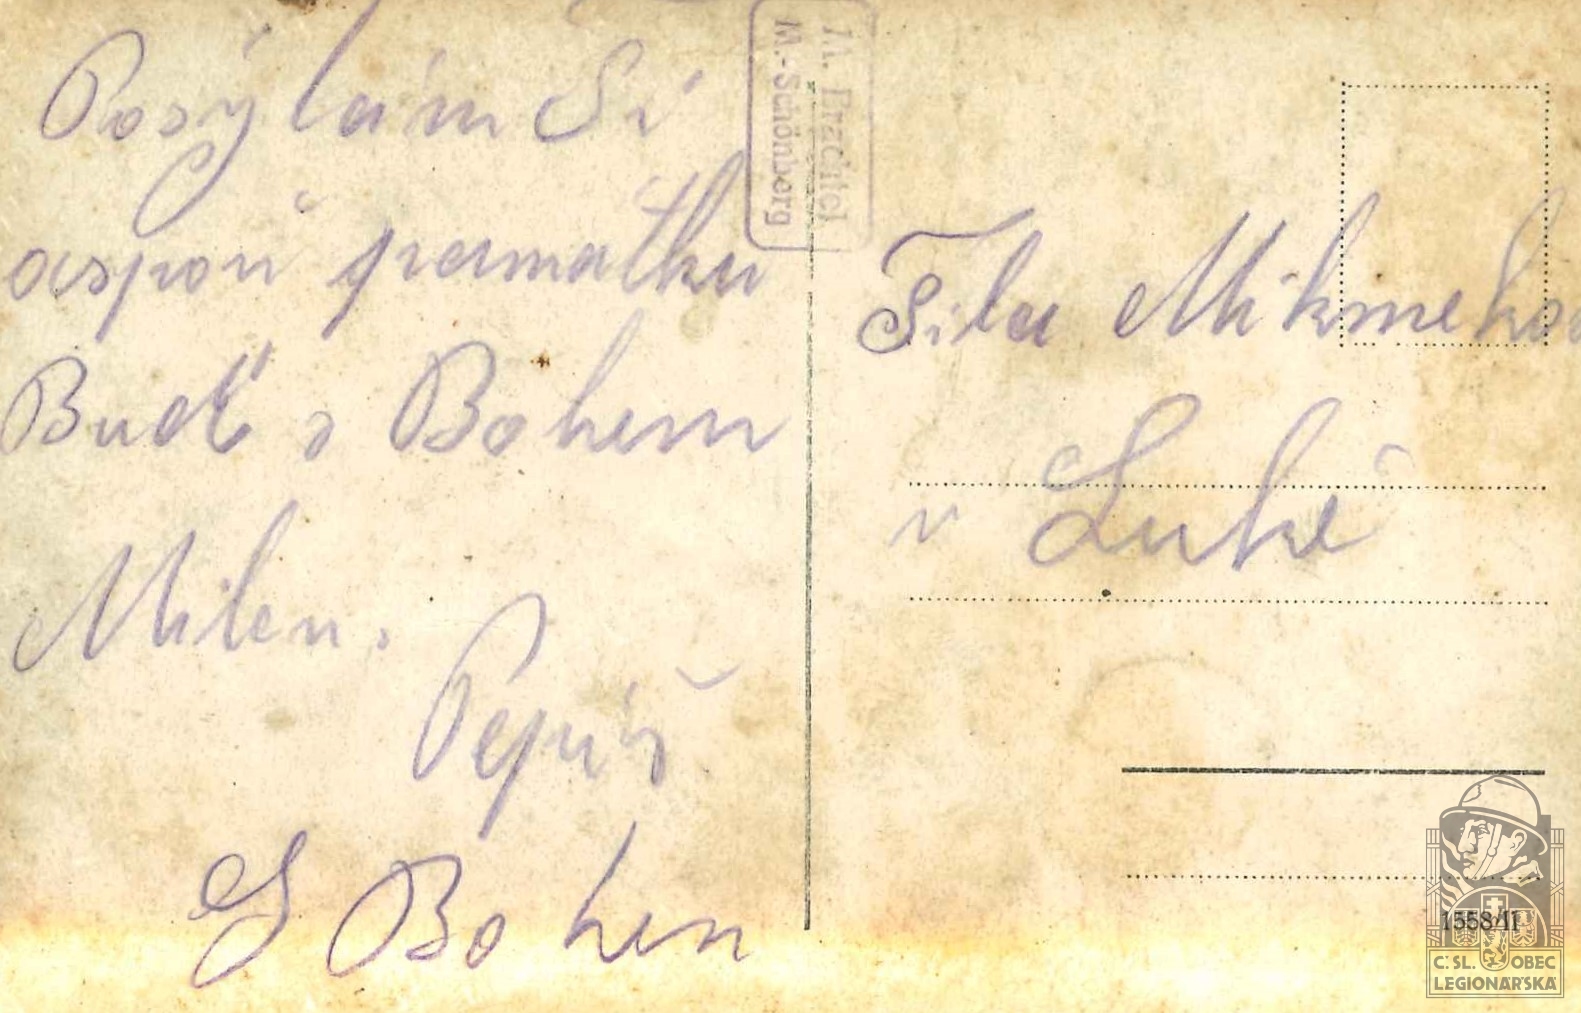 Posýlám Si
aspoň pamatku
Buď s Bohem
Milen.
Pepúš
S Bohem
M. Brzčitel
M.-Schönberg
Fila
v Luké
1558/II
Č.SL. OBEC
LEGIONÁŘSKÁ